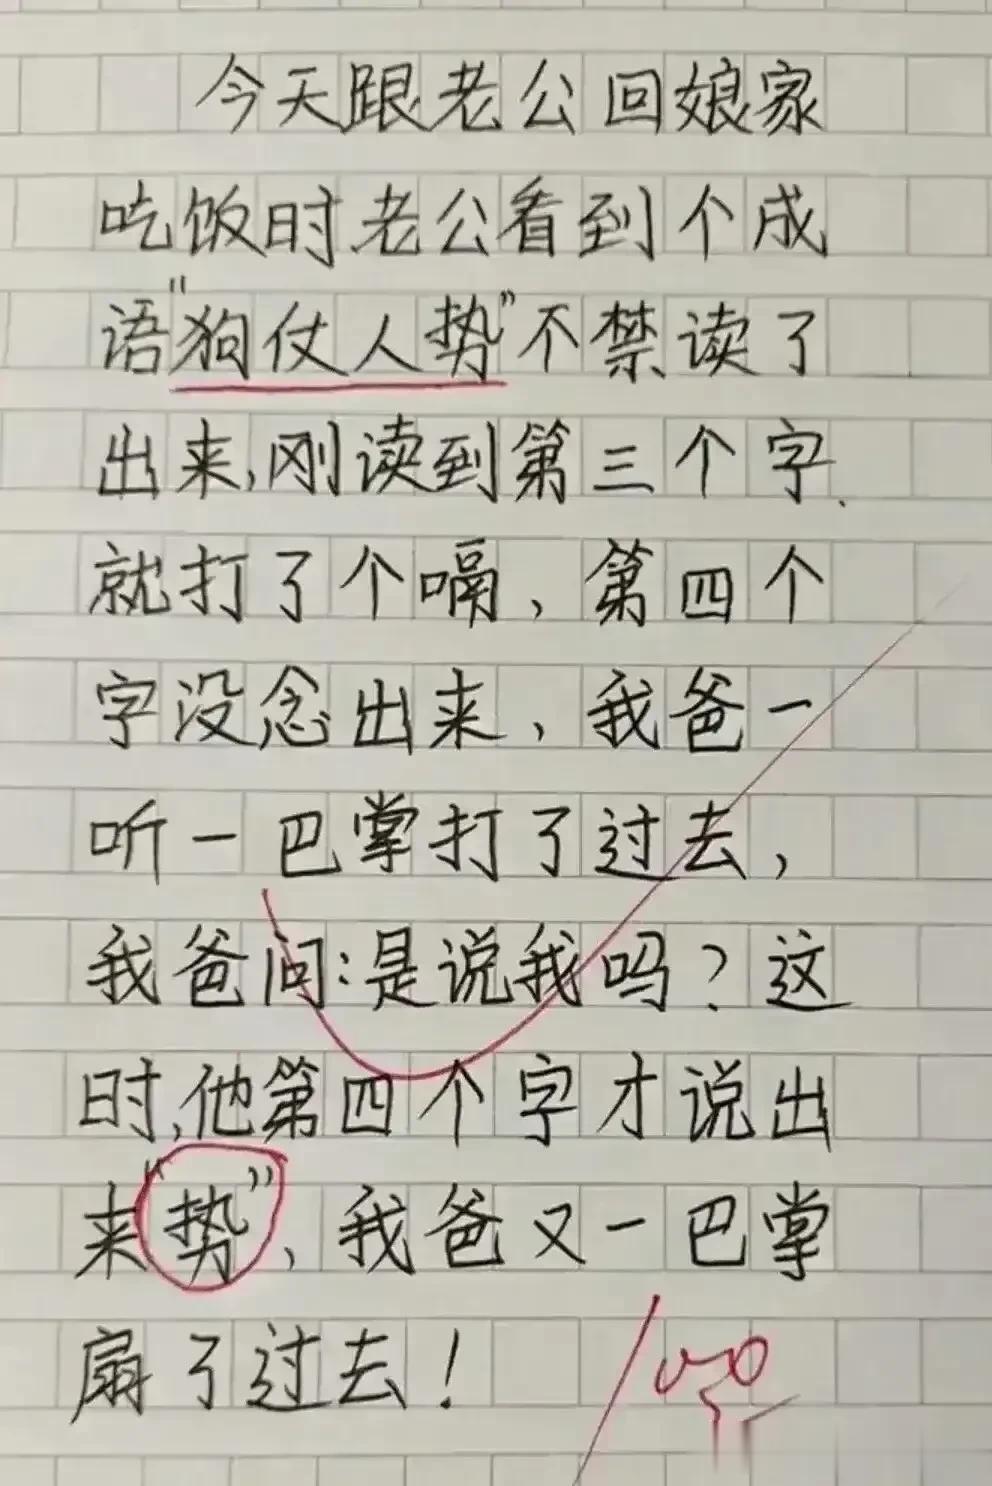 今天跟老公回娘家
吃饭时老公看到个成
语"狗仗人势"不禁读了
出来,刚读到第三个字、
就打了个嗝、第四个
字没念出来，我爸一
听一巴掌打了过去，
我爸问:是说我吗？这
时,他第四个字才说出
来"势"，我爸又一巴掌
扇了过去！
100